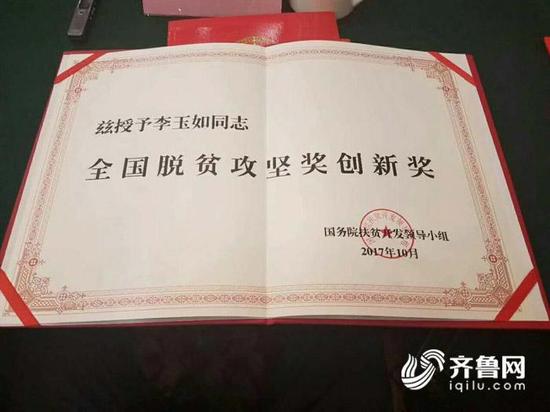 兹授予李玉如同志
全国脱贫攻坚奖创新奖
国务院扶贫开发领导小组
2017年10月
齐鲁网
iqilu.com